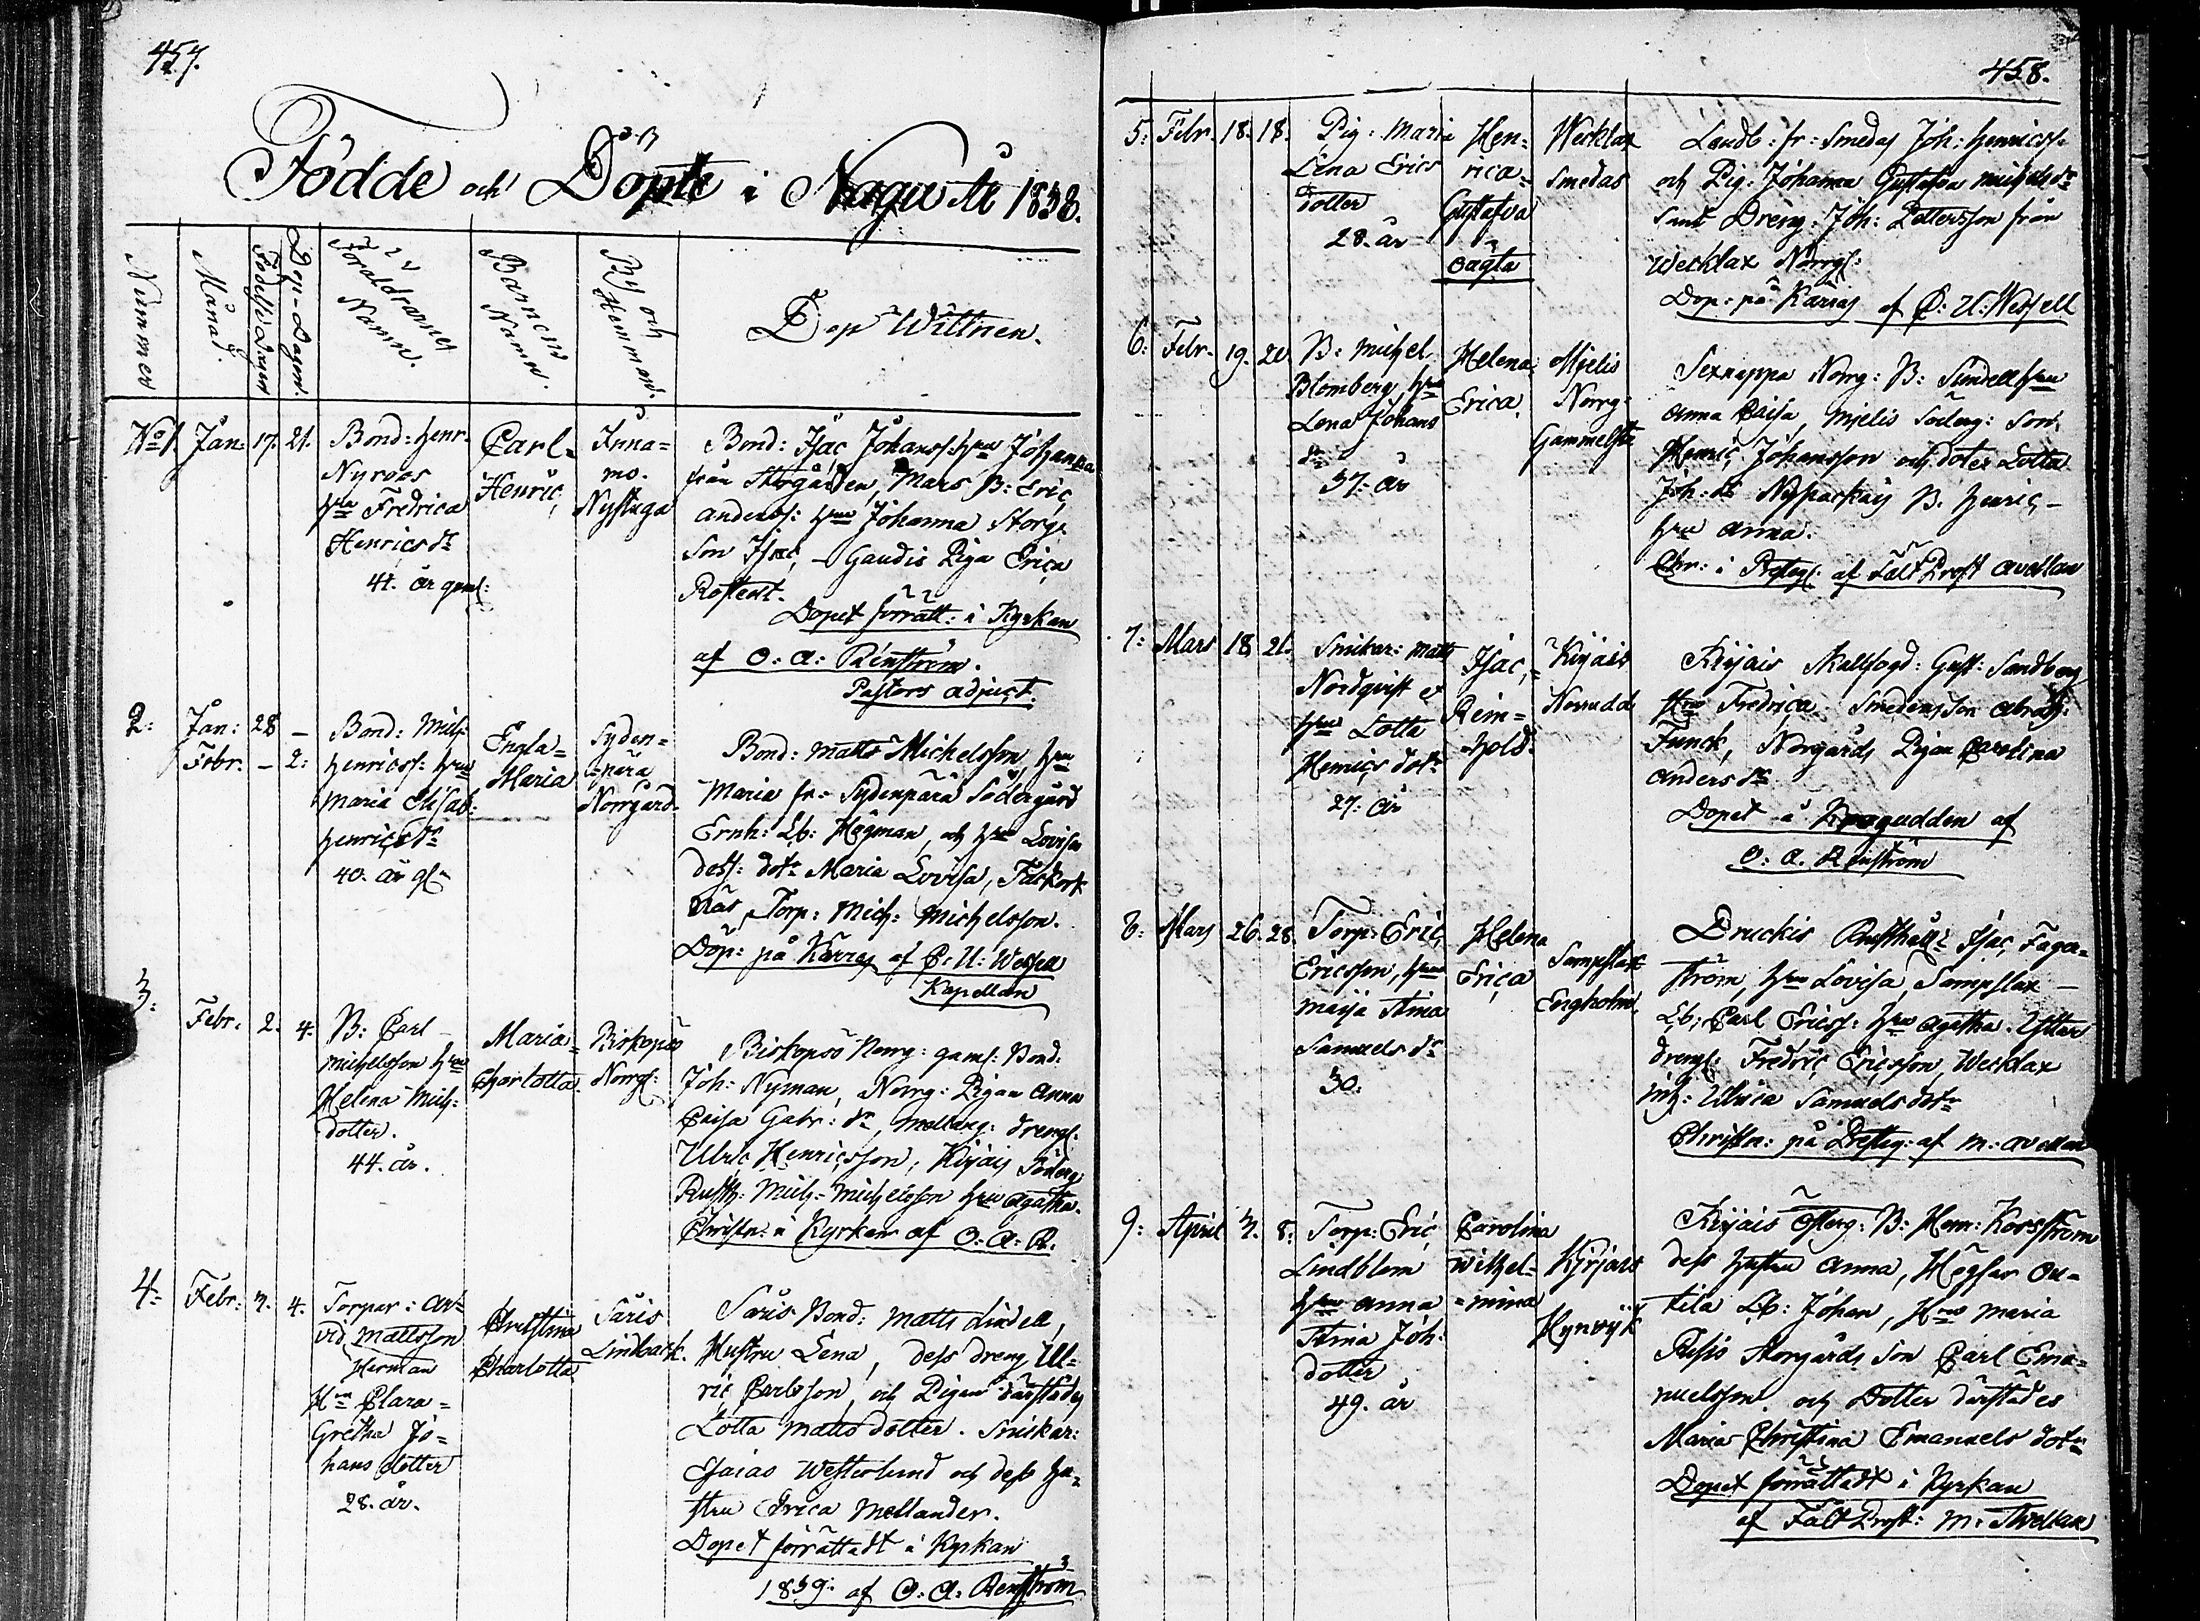 457.
Födde och Döpte i Nagu År 1838.
Nummer
Månad.
Födelse Dagen
Dop-Dagen.
Föräldrarnes Namn.
Barnens Namn.
By och Hemman.
Dop Wittnen.
No 1. Jan: 17. 21.
Bond: Henr.
Nyroos
Hru Fredrica
Henrics dr
41. år gml:
Carl-
Henric,
Inna=
mo.
Nystuga
Bond: Isac Johanss: Hru Johanna
från Storgården, Mars B: Eric
Anderss: Hru Johanna Storg:
Son Isac, - Gaudis Piga Erica
Rostedt.
Dopet förrätt: i Kyrkan
af O: A: Renström.
Pastors adjunct.
2: Jan: 28 -
Febr. - 2:
Bond: Mich:
Henricss: Hru
Maria Elisab:
Henrics dr
40. år gl
Engla=
Maria
Syden=
=pärä
Norrgård.
Bond: Matts Michelsson, Hru
Maria fr: Sydenpärä Södergård
Lb: Högman, och Hru Lovisa
dess: dotr Maria Lovisa,
Torp: Mich: Michelsson.
Döp: på Karras af C: U: Wessell
Kapellan
3: Febr. 2. 4.
B: Carl
Michelsson Hru
Helena Mich:
dotter.
44. år.
Maria=
Charlotta.
Biskopsö
Norrg:
Biskopsö Norrg: gaml: Bond:
Joh: Nyman, Norrg: Pigan Anna
Caisa Gabr: dr, Mellang: drengl:
Ulric Henricsson, Kirjais Söderg
Rusth: Mich: Michelsson Hru Agatha.
Christn: i Kyrkan af O: A: R.
4: Febr: 3. 4.
Torpar: Ar=
vid Mattsson
Herman
Hru Clara=
Gretha Jo=
hans dotter
28. år.
Christina
Charlotta
Säris
Lindback.
Säris Bond: Matts Lindell,
Hustru Lena, dess dreng Ul=
ric Carlsson, och Pigan därstädes
Lotta Matts dotter. Snickar:
Esaias Westerlund och dess hu=
stru Erica Mellander.
Dopet förrättadt i Kyrkan
1839: af O: A: Renström
458.
5: Febr. 18. 18.
Pig: Maria
Lena Erics
dotter
28. år
Hen=
rica=
Gustafva
oägta
Wecklax
Smedas
Landb: fr: Smedas Joh: Henricss:
och Pig: Johanna Gustafva Michels dr
Samt Dreng: Joh: Pettersson från
Wecklax Norrg:
Dop: på Karras af C: U: Wessell
6: Febr. 19. 20
B: Michel
Blomberg, Hru
Lena Johans
dr
37: år
Helena
Erica.
Mjelis
Norrg.
Sexnappa Norrg: B: Sundell Hru
Anna Caisa, Mjelis Söderg: Son
Henric Johansson och doter Lotta
Joh: dr B. Henric
Hru Anna.
Chr: i Prstg: af Fält Prost Avellan
7: Mars 18 21.
Snikar: Matts
Nordqvist
Hru Lotta
Henrics dotr
27: år
Isac,=
Rein=
=hold.
Kirjais
Norrudd
Kirjais Skallfogd: Gust: Sandberg
Hru Fredrica Smedens Son Abrah:
Funck, Norgårds Pigan Carolina
Anders dr
Dopet i Krogudden af
O. A. Renström
8: Mars 26. 28.
Torp: Eric
Ericsson, Hru
Maija Stina
Samuels dr
30.
Helena
Erica
Sampslax
Engholm.
Druckis Rusthåll: Isac Fager=
ström, Hru Lovisa, Sampslax
Lb: Carl Ericss: Hru Agatha. Ytter
drengl: Fredric Ericsson, Wecklax
pig: Ulrica Samuels dotr
Christn: på Prstg: af M: Avellan
9: April 3. 8:
Torp: Eric
Lindblom
Hru Anna
Stina Joh:
dotter
49. år
Carolina
Wilhel=
=mina
Kirjais
Hynvik
Kirjais Österg: B: Henr: Korsström
dess hustru Anna, Högsar Ou=
tila Lb: Johan, Hru Maria
Risis Storgårds Son Carl Ema=
nuelsson. och Dotter därstädes
Maria Christina Emanuels dotr
Dopet förrättadt i Kyrkan
af Fält Prost: M: Avellan